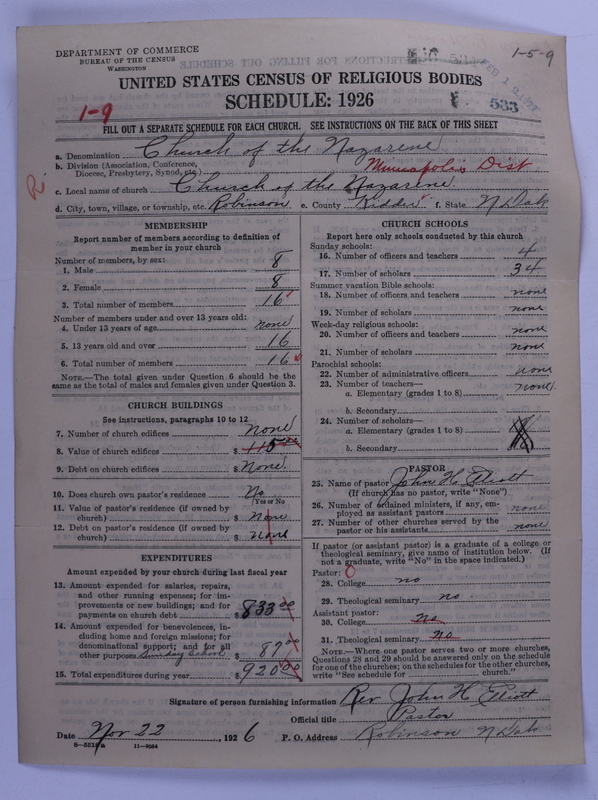 DEPARTMENT OF COMMERCE
BUREAU OF THE CENSUS
WASHINGTON
1-5-9
UNITED STATES CENSUS OF RELIGIOUS BODIES
SCHEDULE: 1926
1-9
533
FILL OUT A SEPARATE SCHEDULE FOR EACH CHURCH. SEE INSTRUCTIONS ON THE BACK OF THIS SHEET
a. Denomination Church of the Nazarene
b. Division (Association, Conference, Diocese, Presbytery, Synod, etc.) Minneapolis Dist
R
c. Local name of church Church of the Nazarene
d. City, town, village, or township, etc. Robinson e. County Kidder f. State N Dak
MEMBERSHIP
Report number of members according to definition of member in your church
Number of members, by sex:
1. Male 8
2. Female 8
3. Total number of members 16
Number of members under and over 13 years old:
4. Under 13 years of age none
5. 13 years old and over 16
6. Total number of members 16
NOTE.—The total given under Question 6 should be the same as the total of males and females given under Question 3.
CHURCH BUILDINGS
See instructions, paragraphs 10 to 12
7. Number of church edifices None
8. Value of church edifices $
9. Debt on church edifices $ None
10. Does church own pastor's residence No
(Yes or No)
11. Value of pastor's residence (if owned by church) $ none
12. Debt on pastor's residence (if owned by church) $ none
EXPENDITURES
Amount expended by your church during last fiscal year
13. Amount expended for salaries, repairs, and other running expenses; for improvements or new buildings; and for payments on church debt $ 833 00
14. Amount expended for benevolences, including home and foreign missions; for denominational support; and for all other purposes Sunday School $ 87 00
15. Total expenditures during year $ 920 00
CHURCH SCHOOLS
Report here only schools conducted by this church
Sunday schools:
16. Number of officers and teachers 4
17. Number of scholars 34
Summer vacation Bible schools:
18. Number of officers and teachers none
19. Number of scholars none
Week-day religious schools:
20. Number of officers and teachers none
21. Number of scholars none
Parochial schools:
22. Number of administrative officers none
23. Number of teachers—
a. Elementary (grades 1 to 8) none
b. Secondary
24. Number of scholars—
a. Elementary (grades 1 to 8)
b. Secondary
PASTOR
25. Name of pastor John H. Elliott
(If church has no pastor, write "None")
26. Number of ordained ministers, if any, employed as assistant pastors none
27. Number of other churches served by the pastor or his assistants none
If pastor (or assistant pastor) is a graduate of a college or theological seminary, give name of institution below. (If not a graduate, write "No" in the space indicated.)
Pastor: 0
28. College no
29. Theological seminary no
Assistant pastor:
30. College no
31. Theological seminary no
NOTE.—Where one pastor serves two or more churches, Questions 28 and 29 should be answered only on the schedule for one of the churches; on the schedules for the other churches, write "See schedule for church."
Signature of person furnishing information Rev John H. Elliott
Official title Pastor
Date Nov 22, 1926 P. O. Address Robinson N Dak
8—5518a 11—9084